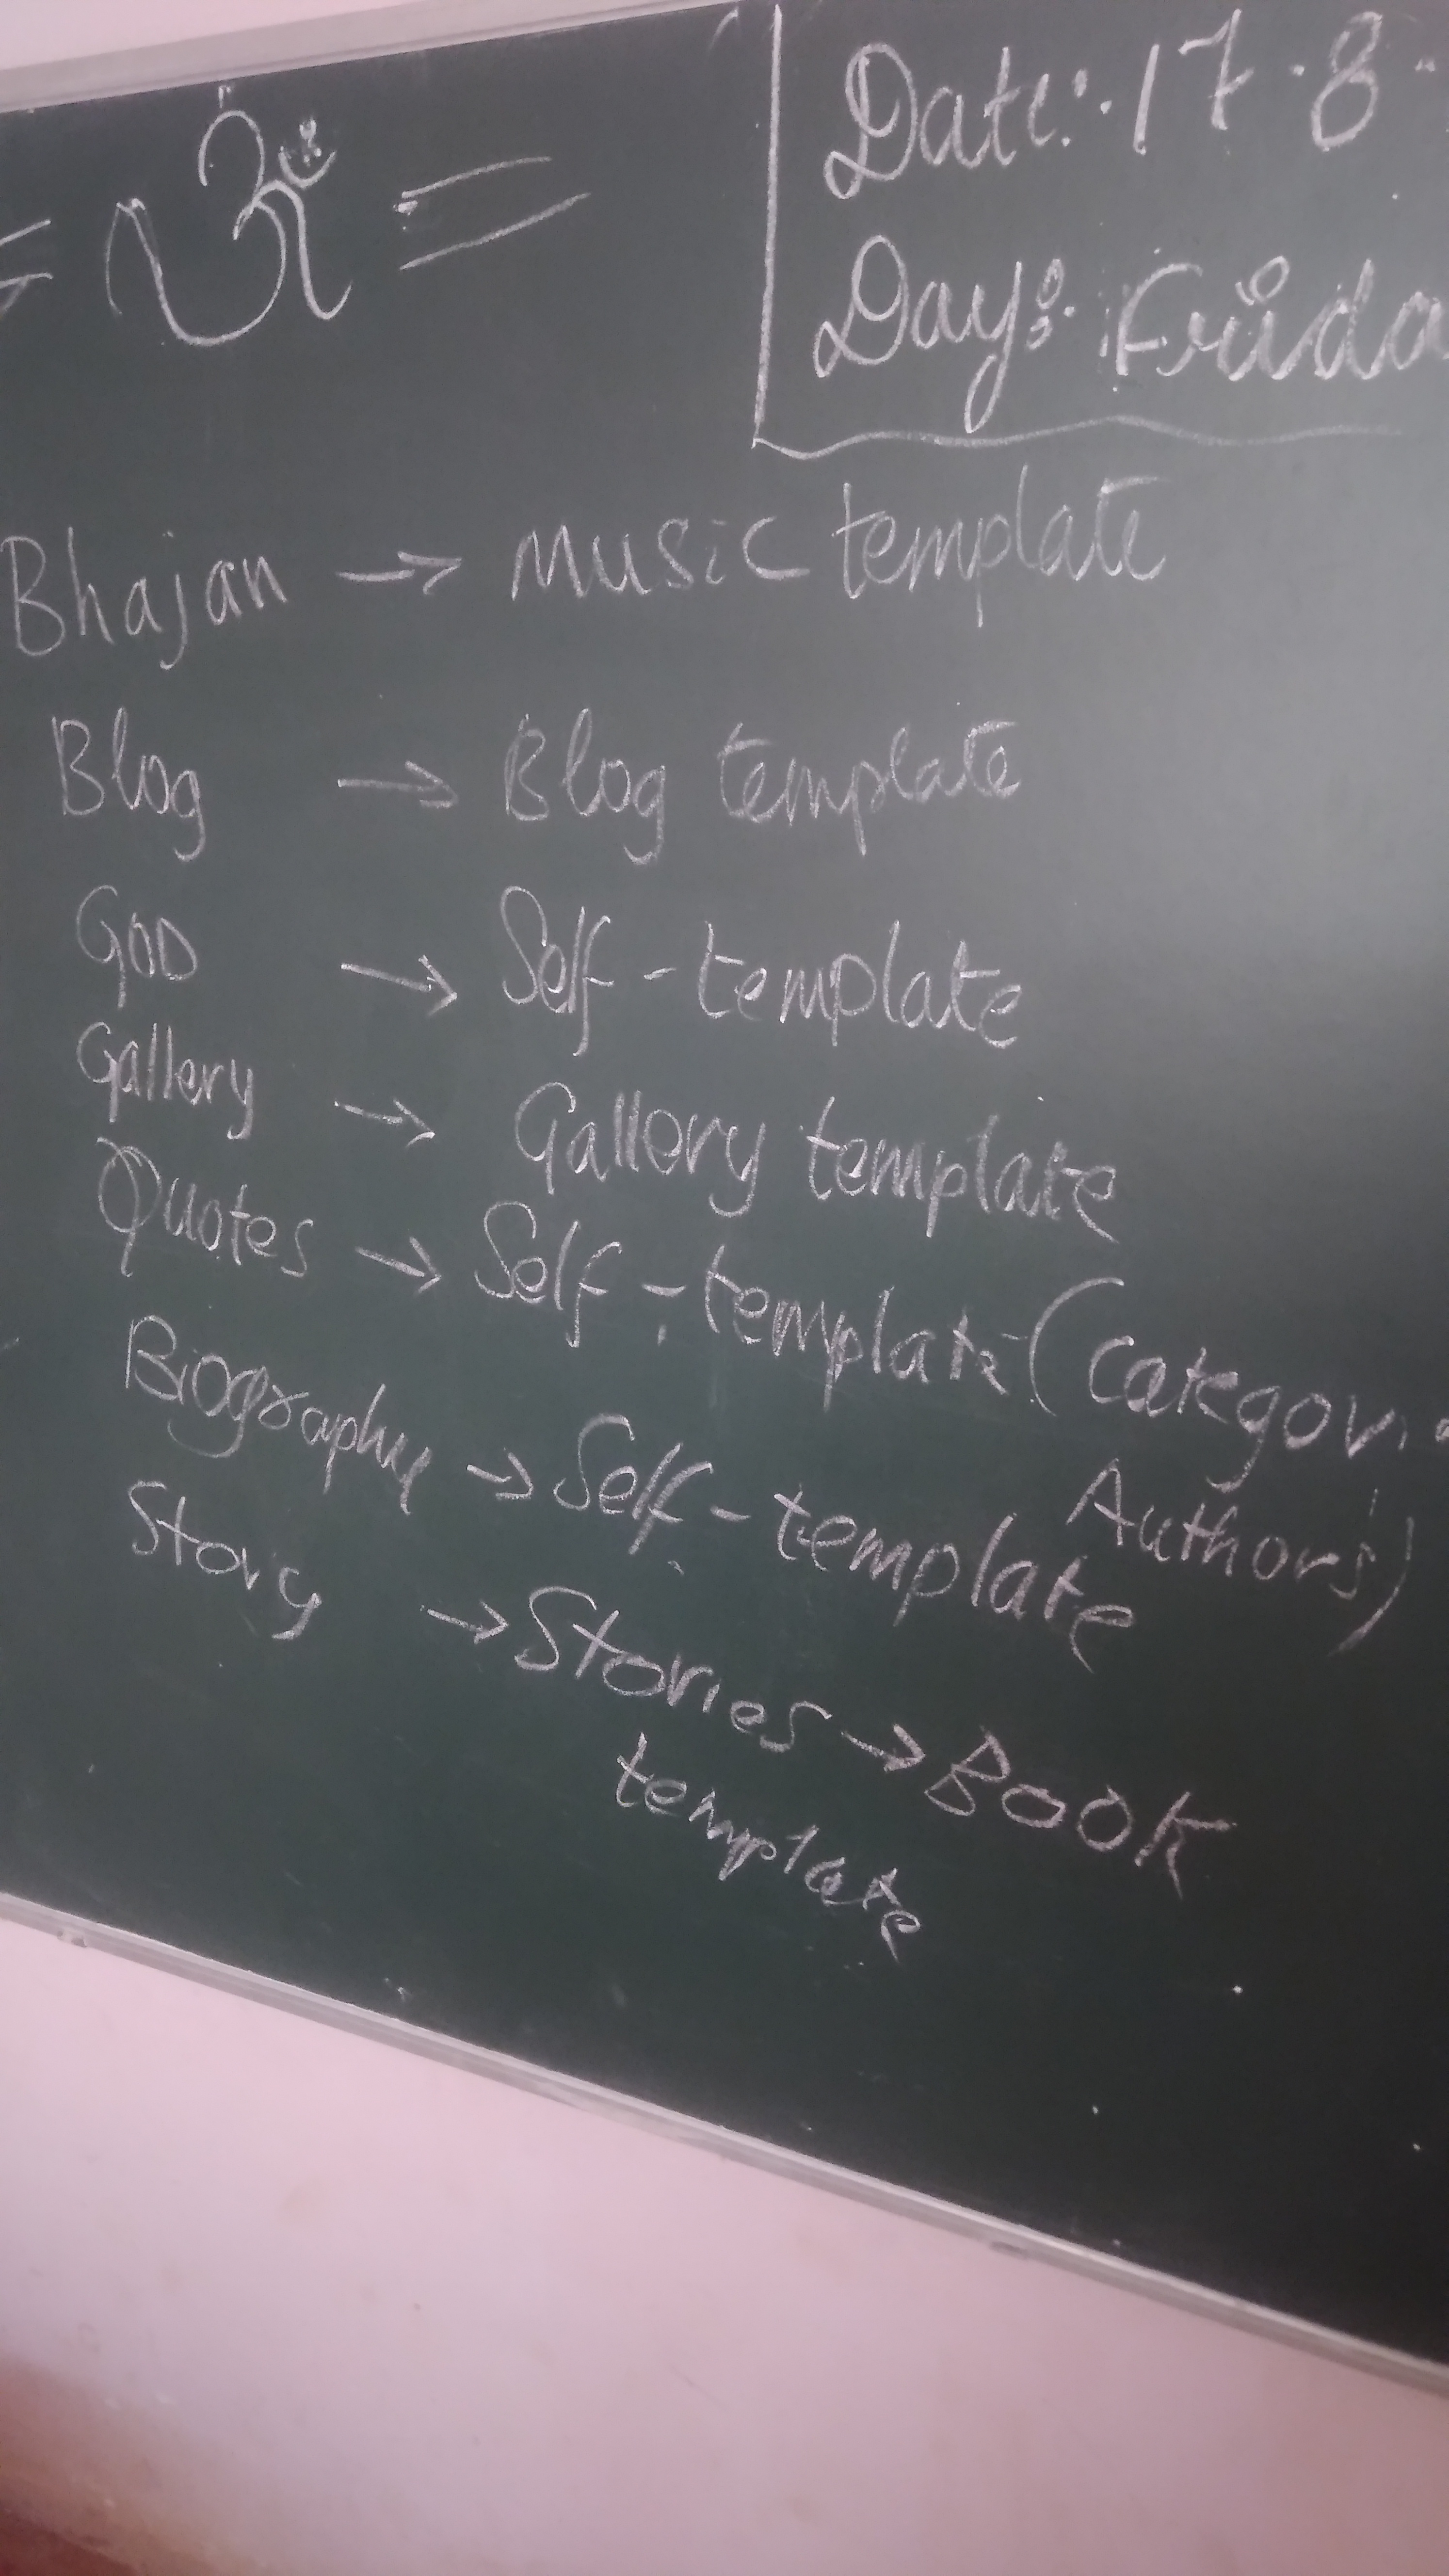 = ૐ =
Date:. 17.8.
Day:. Frida
Bhajan → Music template
Blog → Blog template
GOD → Self-template
Gallery → Gallery template
Quotes → Self-template (Categori
Authors)
Biography → Self-template
Story → Stories → Book
template